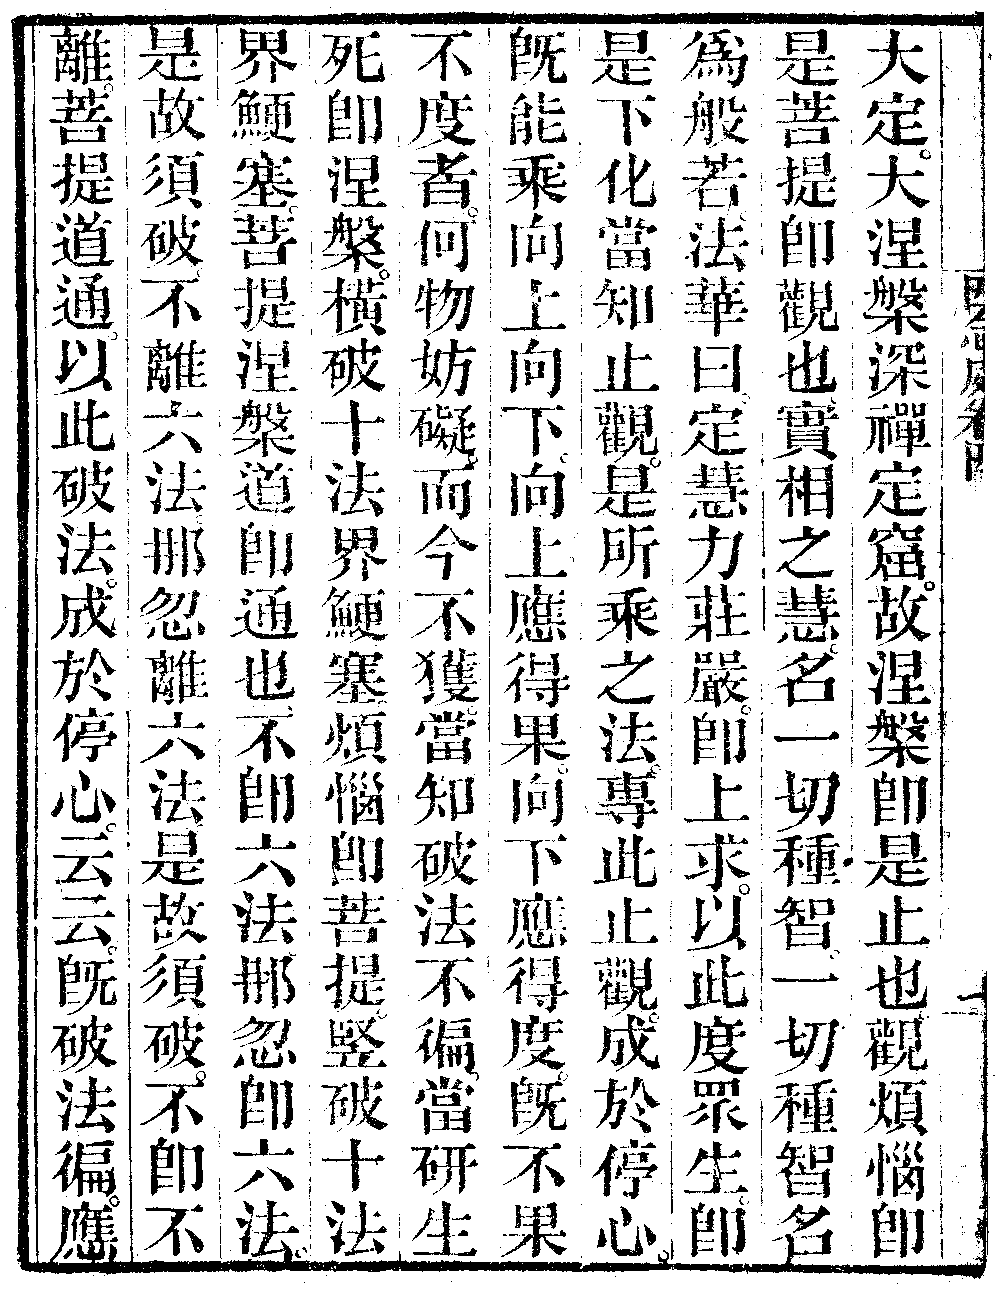 大定。大涅槃深禪定窟。故涅槃即是止也觀煩惱即
是菩提即觀也實相之慧名一切種智一切種智名
爲般若法華曰定慧力莊嚴。即上求。以此度眾生即
是下化當知止觀。是所乘之法專此止觀。成於停心。
旣能乘向上向下。向上應得果向下應得度。旣不果
不度者。何物妨礙。而今不獲。當知破法不徧。當研生
死即涅槃。橫破十法界鯁塞煩惱即菩提竪破十法
界鯁塞。菩提涅槃道即通也不即六法那忽即六法。
是故須破不離六法那忽離六法是故須破。不即不
離。菩提道通。以此破法。成於停心。云云。旣破法徧。應